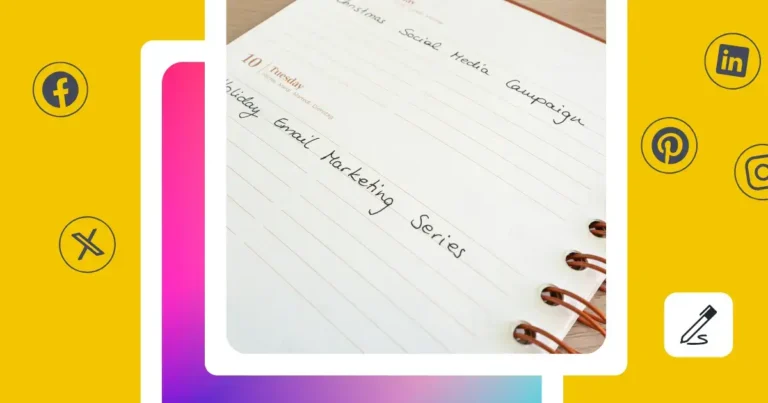 Christmas Social Media Campaign
10 Tuesday
Holiday Email Marketing Series